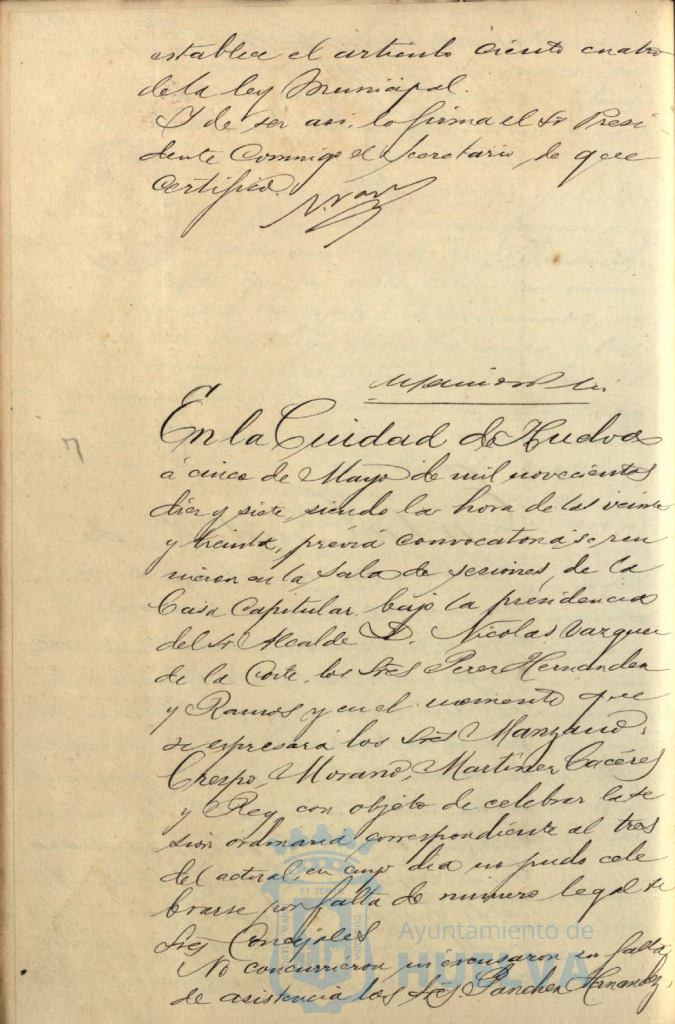 establece el artículo ciento cuatro
de la ley Municipal.
Y de ser así, lo firma el Sr Presi
dente Conmigo el Secretario, de que
Certifico.
En la Ciudad de Huelva
á cinco de Mayo de mil novecientos
diez y siete, siendo la hora de las veinte
y treinta, prévia convocatoria se reu
nieron en la Sala de sesiones, de la
Casa Capitular bajo la presidencia
del Sr Alcalde D. Nicolas Vazquez
de la Corte, los Sres Perez Hernandez
y Ramos y en el momento que
se espresará los Sres Manzano,
Crespo, Morano, Martinez Cacéres
y Rey con objeto de celebrar la se
sion ordinaria correspondiente al tres
del actual, en cuyo dia no pudo cele
brarse por falta de número legal de
Sres Concejales
No concurrieron ni escusaron su falta
de asistencia los Sres. Sanchez Hernandez,
Ayuntamiento de
HUELVA